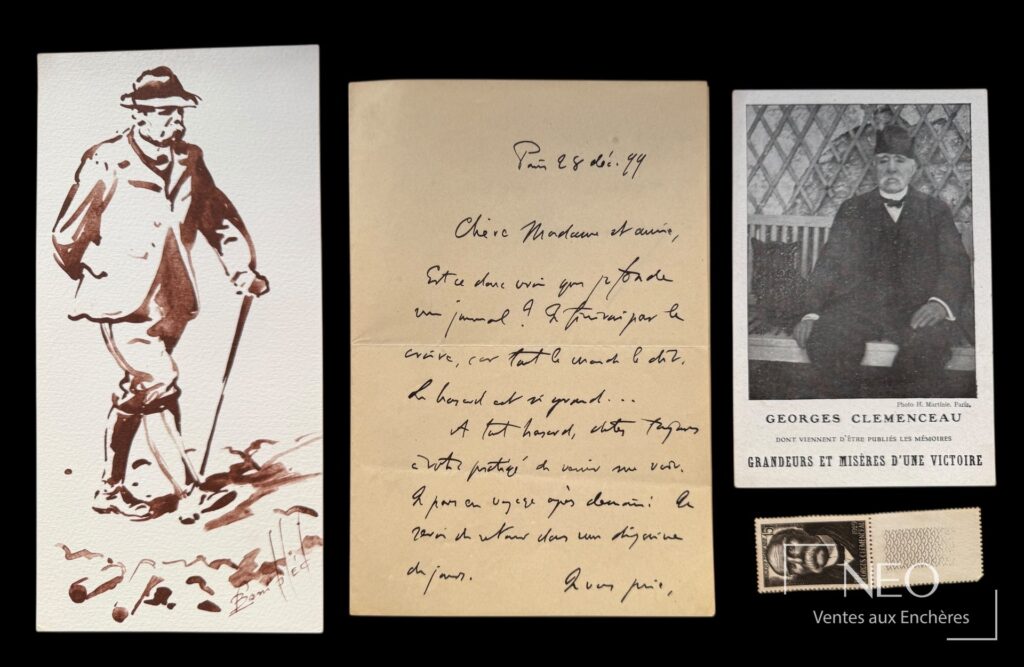 Paris 28 déc. 99
Chère Madame et amie,
Est ce donc vrai que je fonde
un journal? Je finirai par le
croire, car tout le monde le dit.
Le hasard est si grand...
A tout hasard, dites toujours
à votre protégé de venir me voir.
Je pars en voyage après demain: Je
serai de retour dans une dizaine
de jours. Je vous prie,
Photo H. Martinie. Paris.
GEORGES CLEMENCEAU
DONT VIENNENT D'ÊTRE PUBLIÉS LES MÉMOIRES
GRANDEURS ET MISÈRES D'UNE VICTOIRE
NEO
Ventes aux Enchères